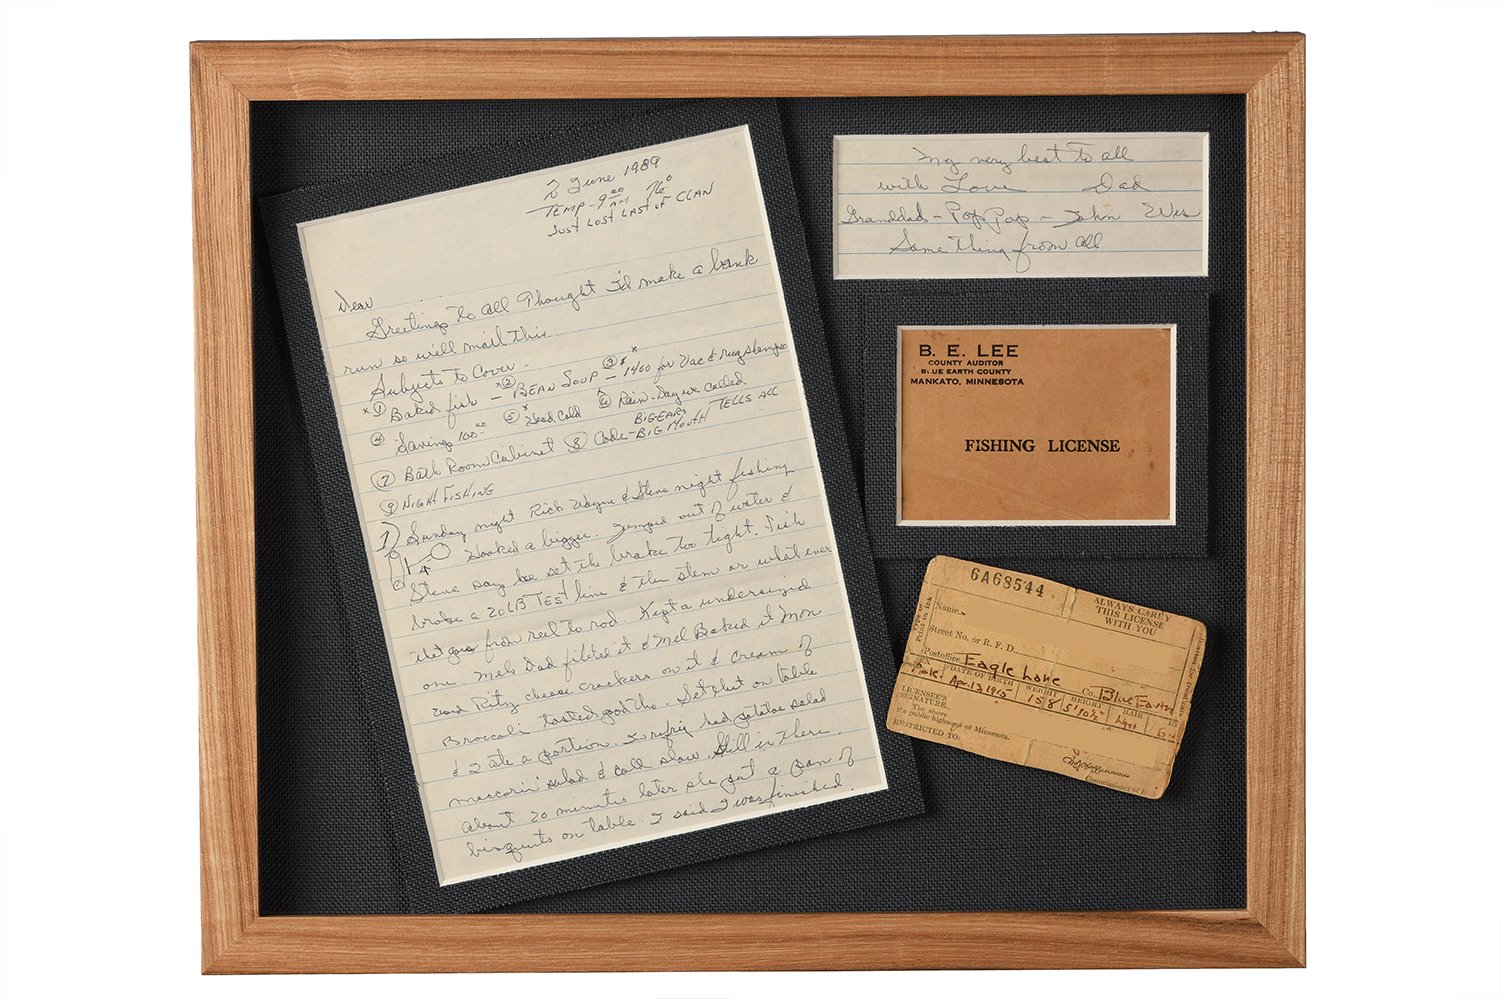 2 June 1989
TEMP - 9 00 AM 76°
JUST LOST LAST OF CLAN
Dear
Greetings to all Thought I'd make a bank
run so will mail this.
Subjects to Cover -
x ① Baked fish - x ② BEAN SOUP - ③ x 1400 for Vac & rug shampoo
④ Savings 100 00 ⑤ x Head Cold ⑥ Rain-Day we called
⑦ Bath Room Cabinet ⑧ Code - BIG EARS BIG MOUTH TELLS ALL
⑨ NIGHT FISHING
1) Sunday night Rick Wayne & Steve night fishing
Hooked a biggie. Jumped out of water &
Steve says he set the brake too tight. Fish
broke a 20LB TEST line & the stem or what ever
that goes from reel to rod. Kept a undersized
one. Mels Dad filited it & Mel Baked it Mon
used Ritz cheese crackers on it & cream of
Broccoli tasted good tho. Set that on table
& I ate a portion. In refrig had potatoe salad
maccorini salad & coll slaw. Still in there.
about 20 minutes later she put a pan of
bisquits on table. I said I was finished.
My very best to all
with Love Dad
Granddad - Pop Pop - John Wes
Same thing from all
B. E. LEE
COUNTY AUDITOR
BLUE EARTH COUNTY
MANKATO, MINNESOTA
FISHING LICENSE
6A68544
ALWAYS CARRY
THIS LICENSE
WITH YOU
Type or
Print in Ink
Name
Street No. or R. F. D.
Postoffice Eagle Lake Co. Blue Earth
DATE OF BIRTH WEIGHT HEIGHT HAIR
Male Apr. 13 1915 158 5'10½"
LICENSEE'S
SIGNATURE
The above
the public highways of Minnesota.
RESTRICTED TO:
Commissioner of